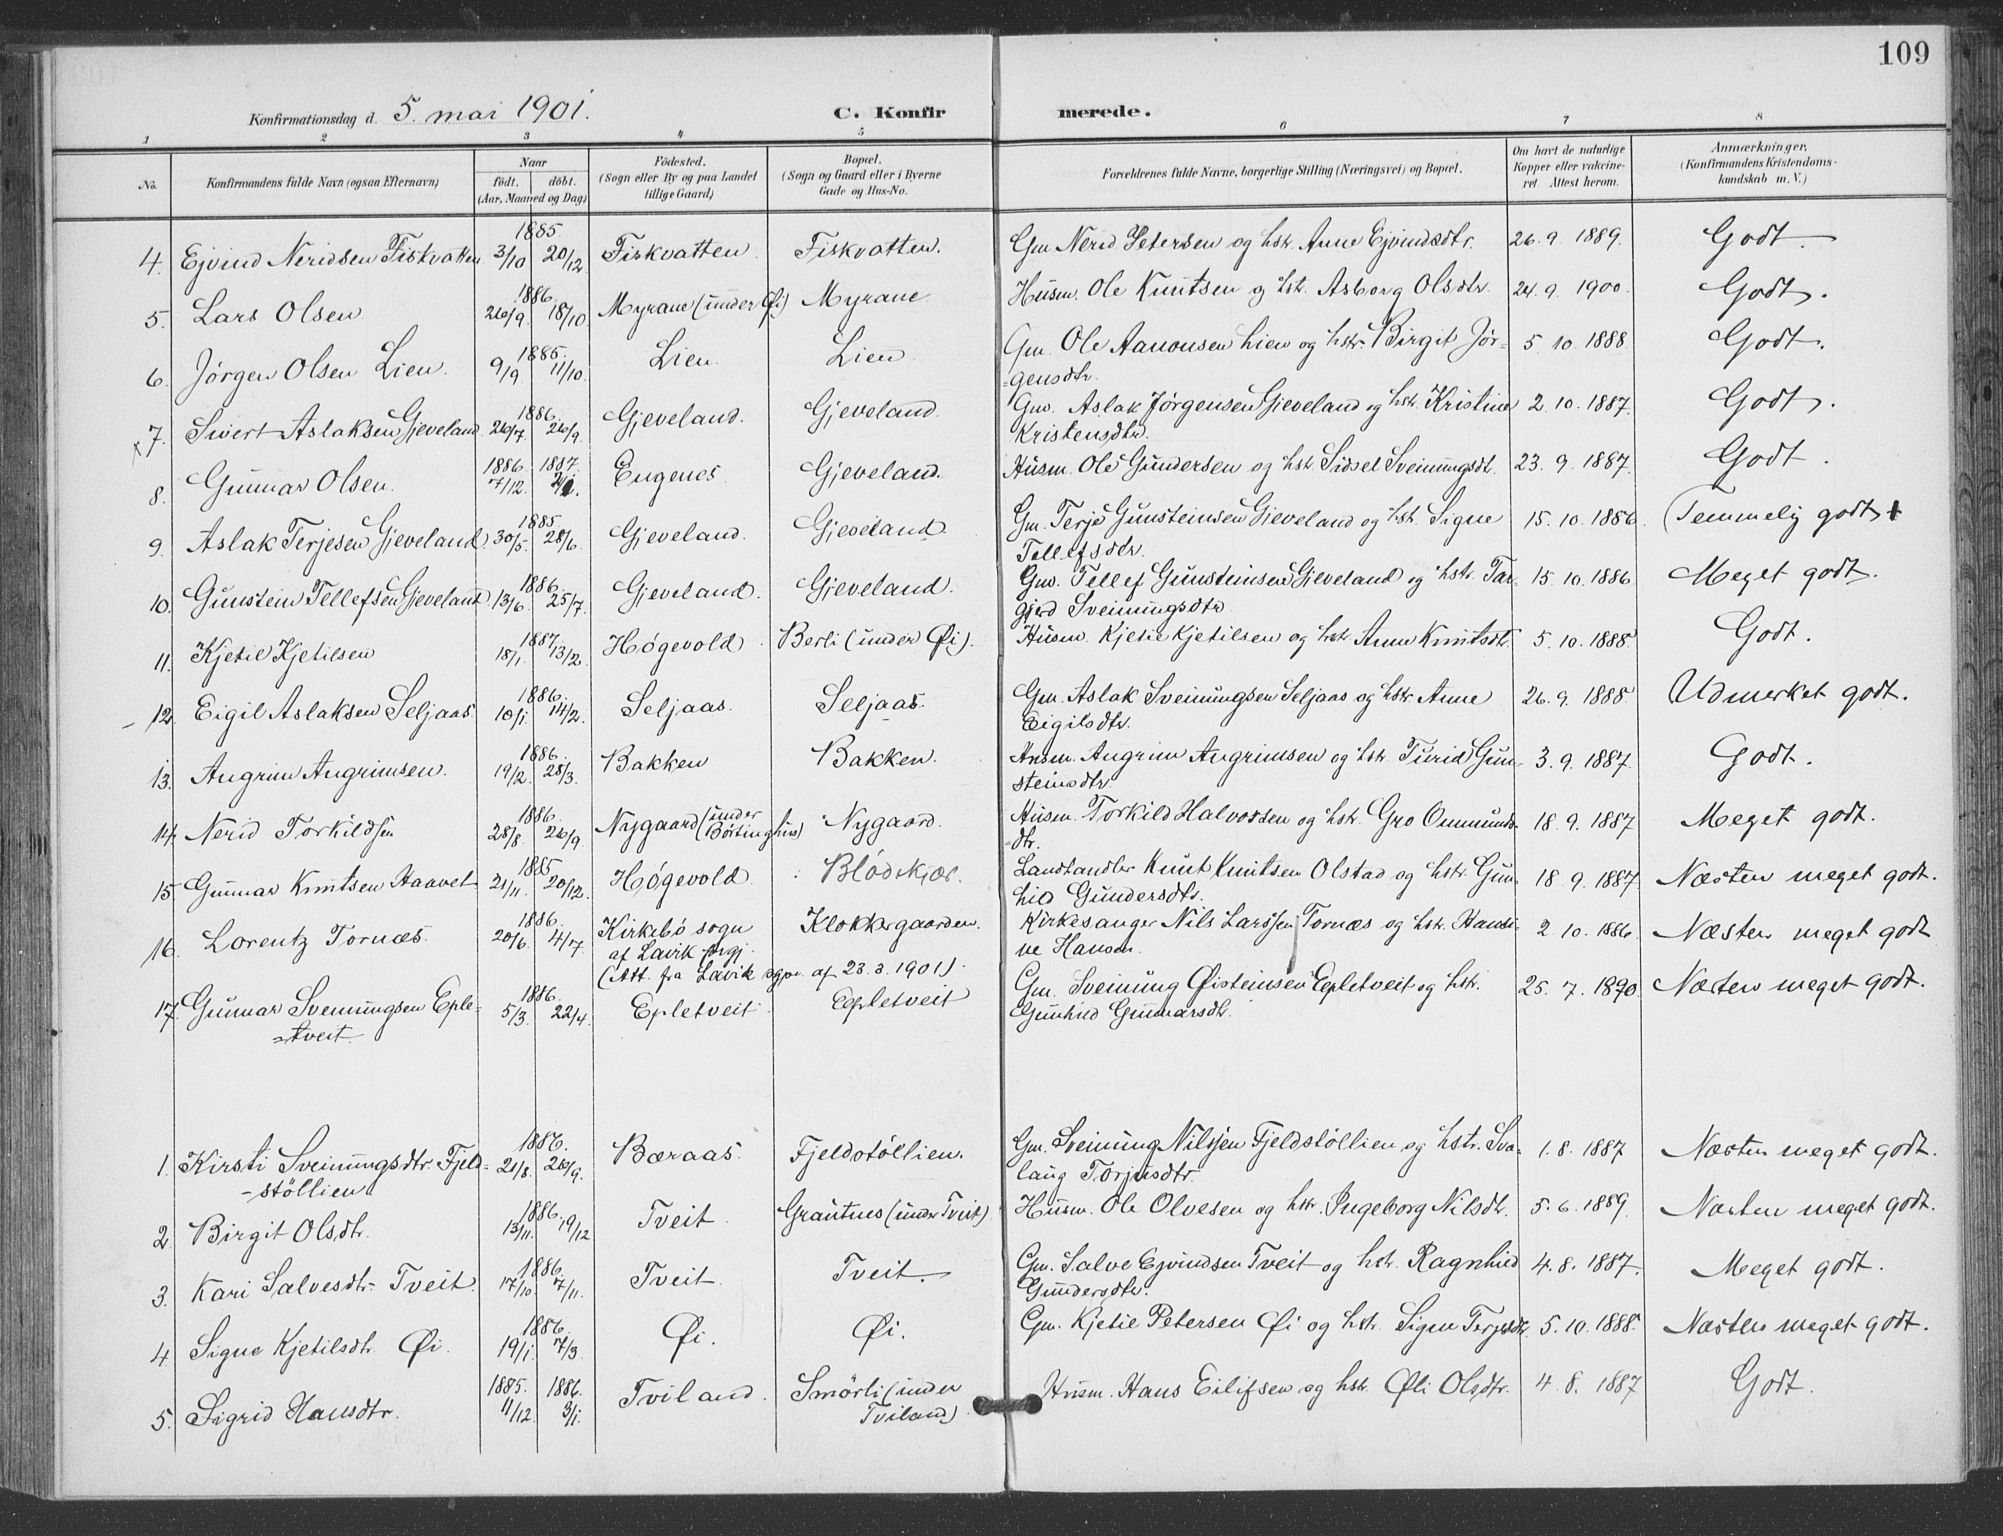 109
Konfirmationsdag d. 5. mai 1901. C. Konfirmerede.
1 2 3 4 5 6 7 8
No. Konfirmandens fulde Navn (ogsaa Efternavn) Naar født. døbt. (Aar, Maaned og Dag) Fødested. (Sogn eller By og paa Landet tillige Gaard) Bopæl. (Sogn og Gaard eller i Byerne Gade og Hus-No. Forældrenes fulde Navne, borgerlige Stilling (Næringsvei) og Bopæl. Om havt de naturlige Kopper eller vaccineret. Attest herom. Anmærkninger, (Konfirmandens Kristendomskundskab m. V.)
1885
4. Ejvind Neridsen Fiskvatten 3/10 20/12. Fiskvatten Fiskvatten. Gm. Nerid Petersen og hstr. Anne Ejvindsdtr. 26. 9. 1889. Godt.
1886.
5. Lars Olsen 26/9. 18/10. Myrane (under Øi) Myrane Husm. Ole Knutsen og hst. Asborg Olsdtr. 24. 9. 1900. Godt.
1885.
6. Jørgen Olsen Lien. 9/9. 11/10. Lien. Lien. Gm. Ole Aanonsen Lien og hstr. Birgit Jør- 5. 10. 1888. Godt.
=gensdtr.
1886.
x7. Sivert Aslaksen Gjeveland. 26/7. 26/9. Gjeveland. Gjeveland. Gm. Aslak Jørgensen Gjeveland og hstr. Kristine 2. 10. 1887. Godt.
Kristensdtr.
1886. 1887.
8. Gunnar Olsen. 7/12. Eugenes Gjeveland. Husm. Ole Gundersen og hst. Sidsel Sveinungsdt. 23. 9. 1887. Godt.
1885.
9. Aslak Terjesen Gjeveland. 30/5. 28/6. Gjeveland. Gjeveland Gm. Terje Gunsteinsen Gjeveland og hst. Signe 15. 10. 1886. (Temmelig godt)
Tellefsdtr.
1886.
10. Gunstein Tellefsen Gjeveland. 13/6. 25/7. Gjeveland. Gjeveland. Gm. Tellef Gunsteinsen Gjeveland og hstr. Tar- 15. 10. 1886. Meget godt.
gjerd Sveinungsdtr
1887.
11. Kjetil Kjetilsen 18/1. 13/2. Høgevold. Berli (under Øi). Husm. Kjetil Kjetilsen og hst. Anne Knutsdtr. 5. 10. 1888. Godt.
1886.
-12. Eigil Aslaksen Seljaas. 10/1. 14/2. Seljaas. Seljaas. Gm. Aslak Sveinungsen Seljaas og hstr. Anne 26. 9. 1888. Udmerket godt.
Eigilsdtr.
1886.
13. Angrim Angrimsen. 19/2. 28/3. Bakken Bakken. Husm. Angrim Angrimsen og hstr. Turid Gun- 3. 9. 1887. Godt.
steinsdtr.
1886.
14. Nerid Torkildsen 28/8. 26/9. Nygaard (under Børtinghus) Nygaard. Husm. Torkild Halvorsen og hstr. Gro Ommunds- 18. 9. 1887 Meget godt.
=dtr.
1885
15 Gunnar Knutsen Haavet 21/11. 20/12. Høgevold. Blødskjær. Landhandler Knut Knutsen Olstad og hstr. Gun- 18. 9. 1887 Næsten meget godt.
hild Gundersdtr.
1886.
16. Lorentz Tornæs. 20/6. 4/7. Kirkebø sogn Klokkergaarden. Kirkesanger Nils Larssen Tornæs og hstr. Hansi- 2. 10. 1886. Næsten meget godt
af Lavik prgj. ne Hansen.
(Att. fra Lavik sgpr. af 23. 3. 1901).
1886.
17. Gunnar Sveinungsen Eple- 5/3. 22/4. Epletveit Epletveit Gm. Sveinung Øisteinsen Epletveit og hstr. 25. 7. 1890. Næsten meget godt.
=tveit. Gunhild Gunnarsdtr.
1886.
1. Kirsti Sveinungsdtr. Fjeld- 21/8. 26/9. Bæraas. Fjeldstøllien. Gm. Sveinung Nilssen Fjeldstøllien og hstr. Sva- 1. 8. 1887 Næsten meget godt.
-støllien laug Torjusdtr.
1886.
2. Birgit Olsdtr. 13/11. 19/12 Tveit Grautnes (under Tveit) Husm. Ole Olvesen og hstr. Ingeborg Nilsdtr. 5. 6. 1889. Næsten meget godt.
1886.
3. Kari Salvesdtr. Tveit. 17/10. 7/11. Tveit. Tveit. Gm. Salve Ejvindsen Tveit og hstr. Ragnhild 4. 8. 1887. Meget godt.
Gundersdtr.
1886.
4. Signe Kjetilsdtr. Øi. 19/1. 7/3. Øi. Øi. Gm. Kjetil Petersen Øi og hstr. Signe Terjesdtr. 5. 10. 1888. Næsten meget godt.
1885. 1886.
5. Sigrid Hansdtr. 11/12. 3/1. Tviland. Smørli (under Tviland) Husm. Hans Eilifsen og hstr. Øli Olsdtr. 4. 8. 1887 Godt.